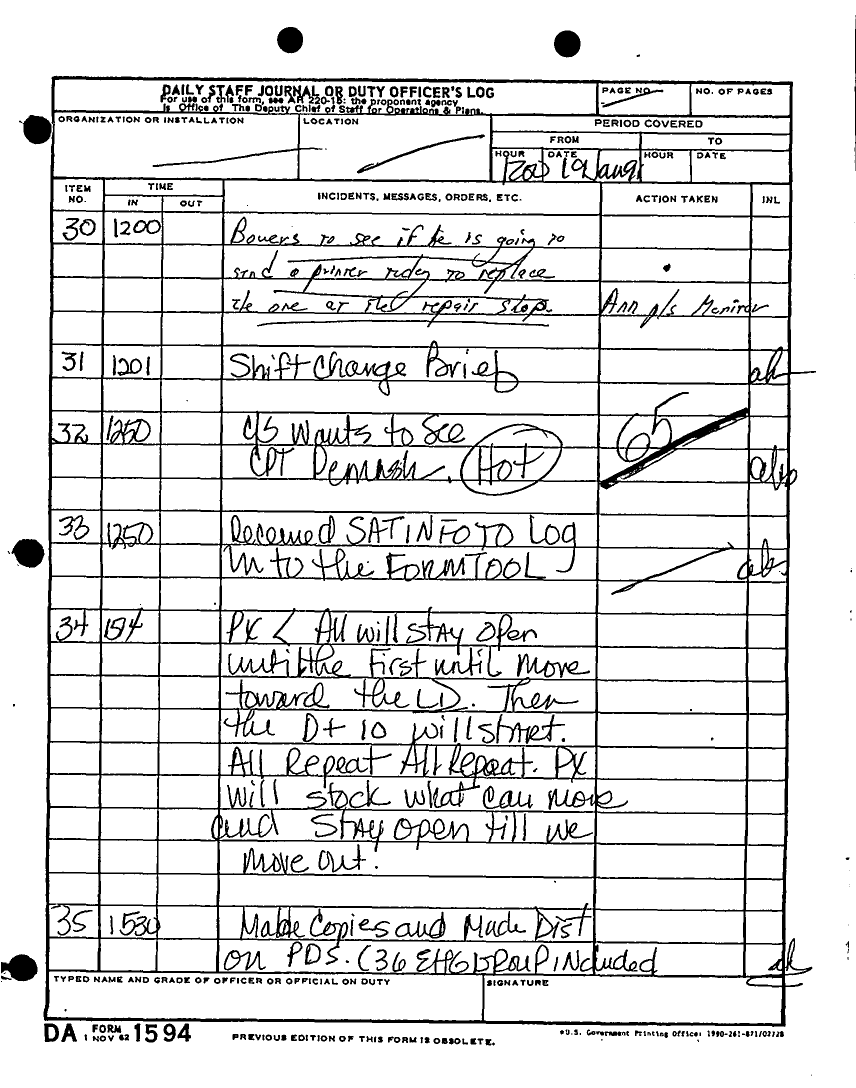 DAILY STAFF JOURNAL OR DUTY OFFICER'S LOG
For use of this form, see AR 220-15; the proponent agency
is Office of The Deputy Chief of Staff for Operations & Plans.
PAGE NO.
NO. OF PAGES
ORGANIZATION OR INSTALLATION
LOCATION
PERIOD COVERED
FROM
TO
HOUR
DATE
HOUR
DATE
1200 19Jan91
ITEM NO.
TIME
IN
OUT
INCIDENTS, MESSAGES, ORDERS, ETC.
ACTION TAKEN
INL
30 1200 Bowers to see if he is going to
send a printer today to replace
the one at the repair shop. Ann p/s Monitor
31 1201 Shift Change Brief
32 1250 C/S Wants to See 65
CPT Demash. Hot
33 1250 Received SATINFO TO Log
in to the FORMTOOL
34 1514 PX < All will stay open
until the first until move
toward the LD. Then
the D+10 will start.
All Repeat All Repeat. PX
will stock what can move
and stay open till we
move out.
35 1530 Made Copies and Made Dist
on PDS. (36 included
TYPED NAME AND GRADE OF OFFICER OR OFFICIAL ON DUTY
SIGNATURE
DA FORM 1 NOV 62 1594
PREVIOUS EDITION OF THIS FORM IS OBSOLETE.
*U.S. Government Printing Office: 1990-261-871/02728